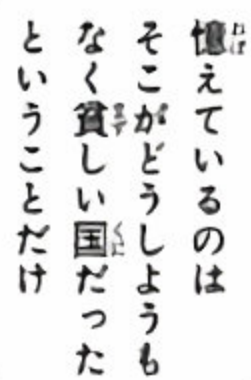 憶えているのは
そこがどうしようも
なく貧しい国だった
ということだけ